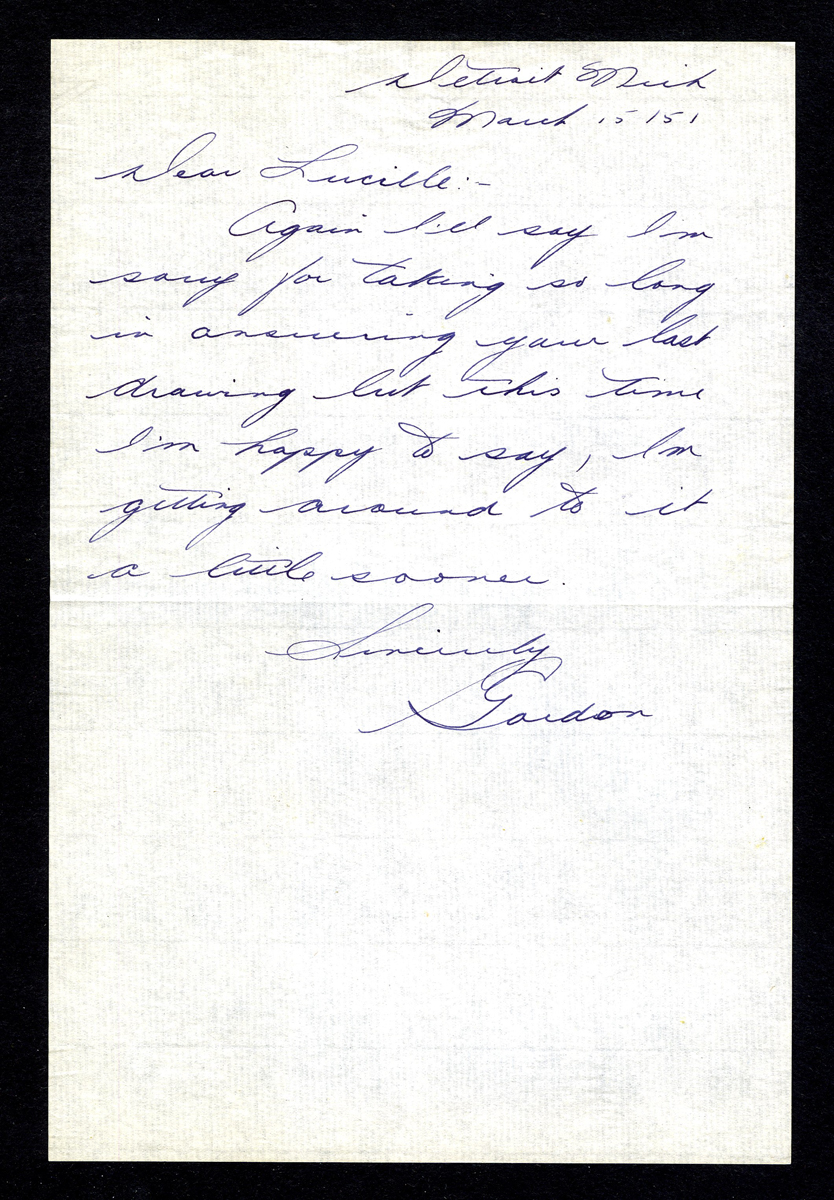 Detroit Mich
March 15/51
Dear Lucille:-
Again I'll say I'm
sorry for taking so long
in answering your last
drawing but this time
I'm happy to say, I'm
getting around to it
a little sooner.
Sincerely
Gordon